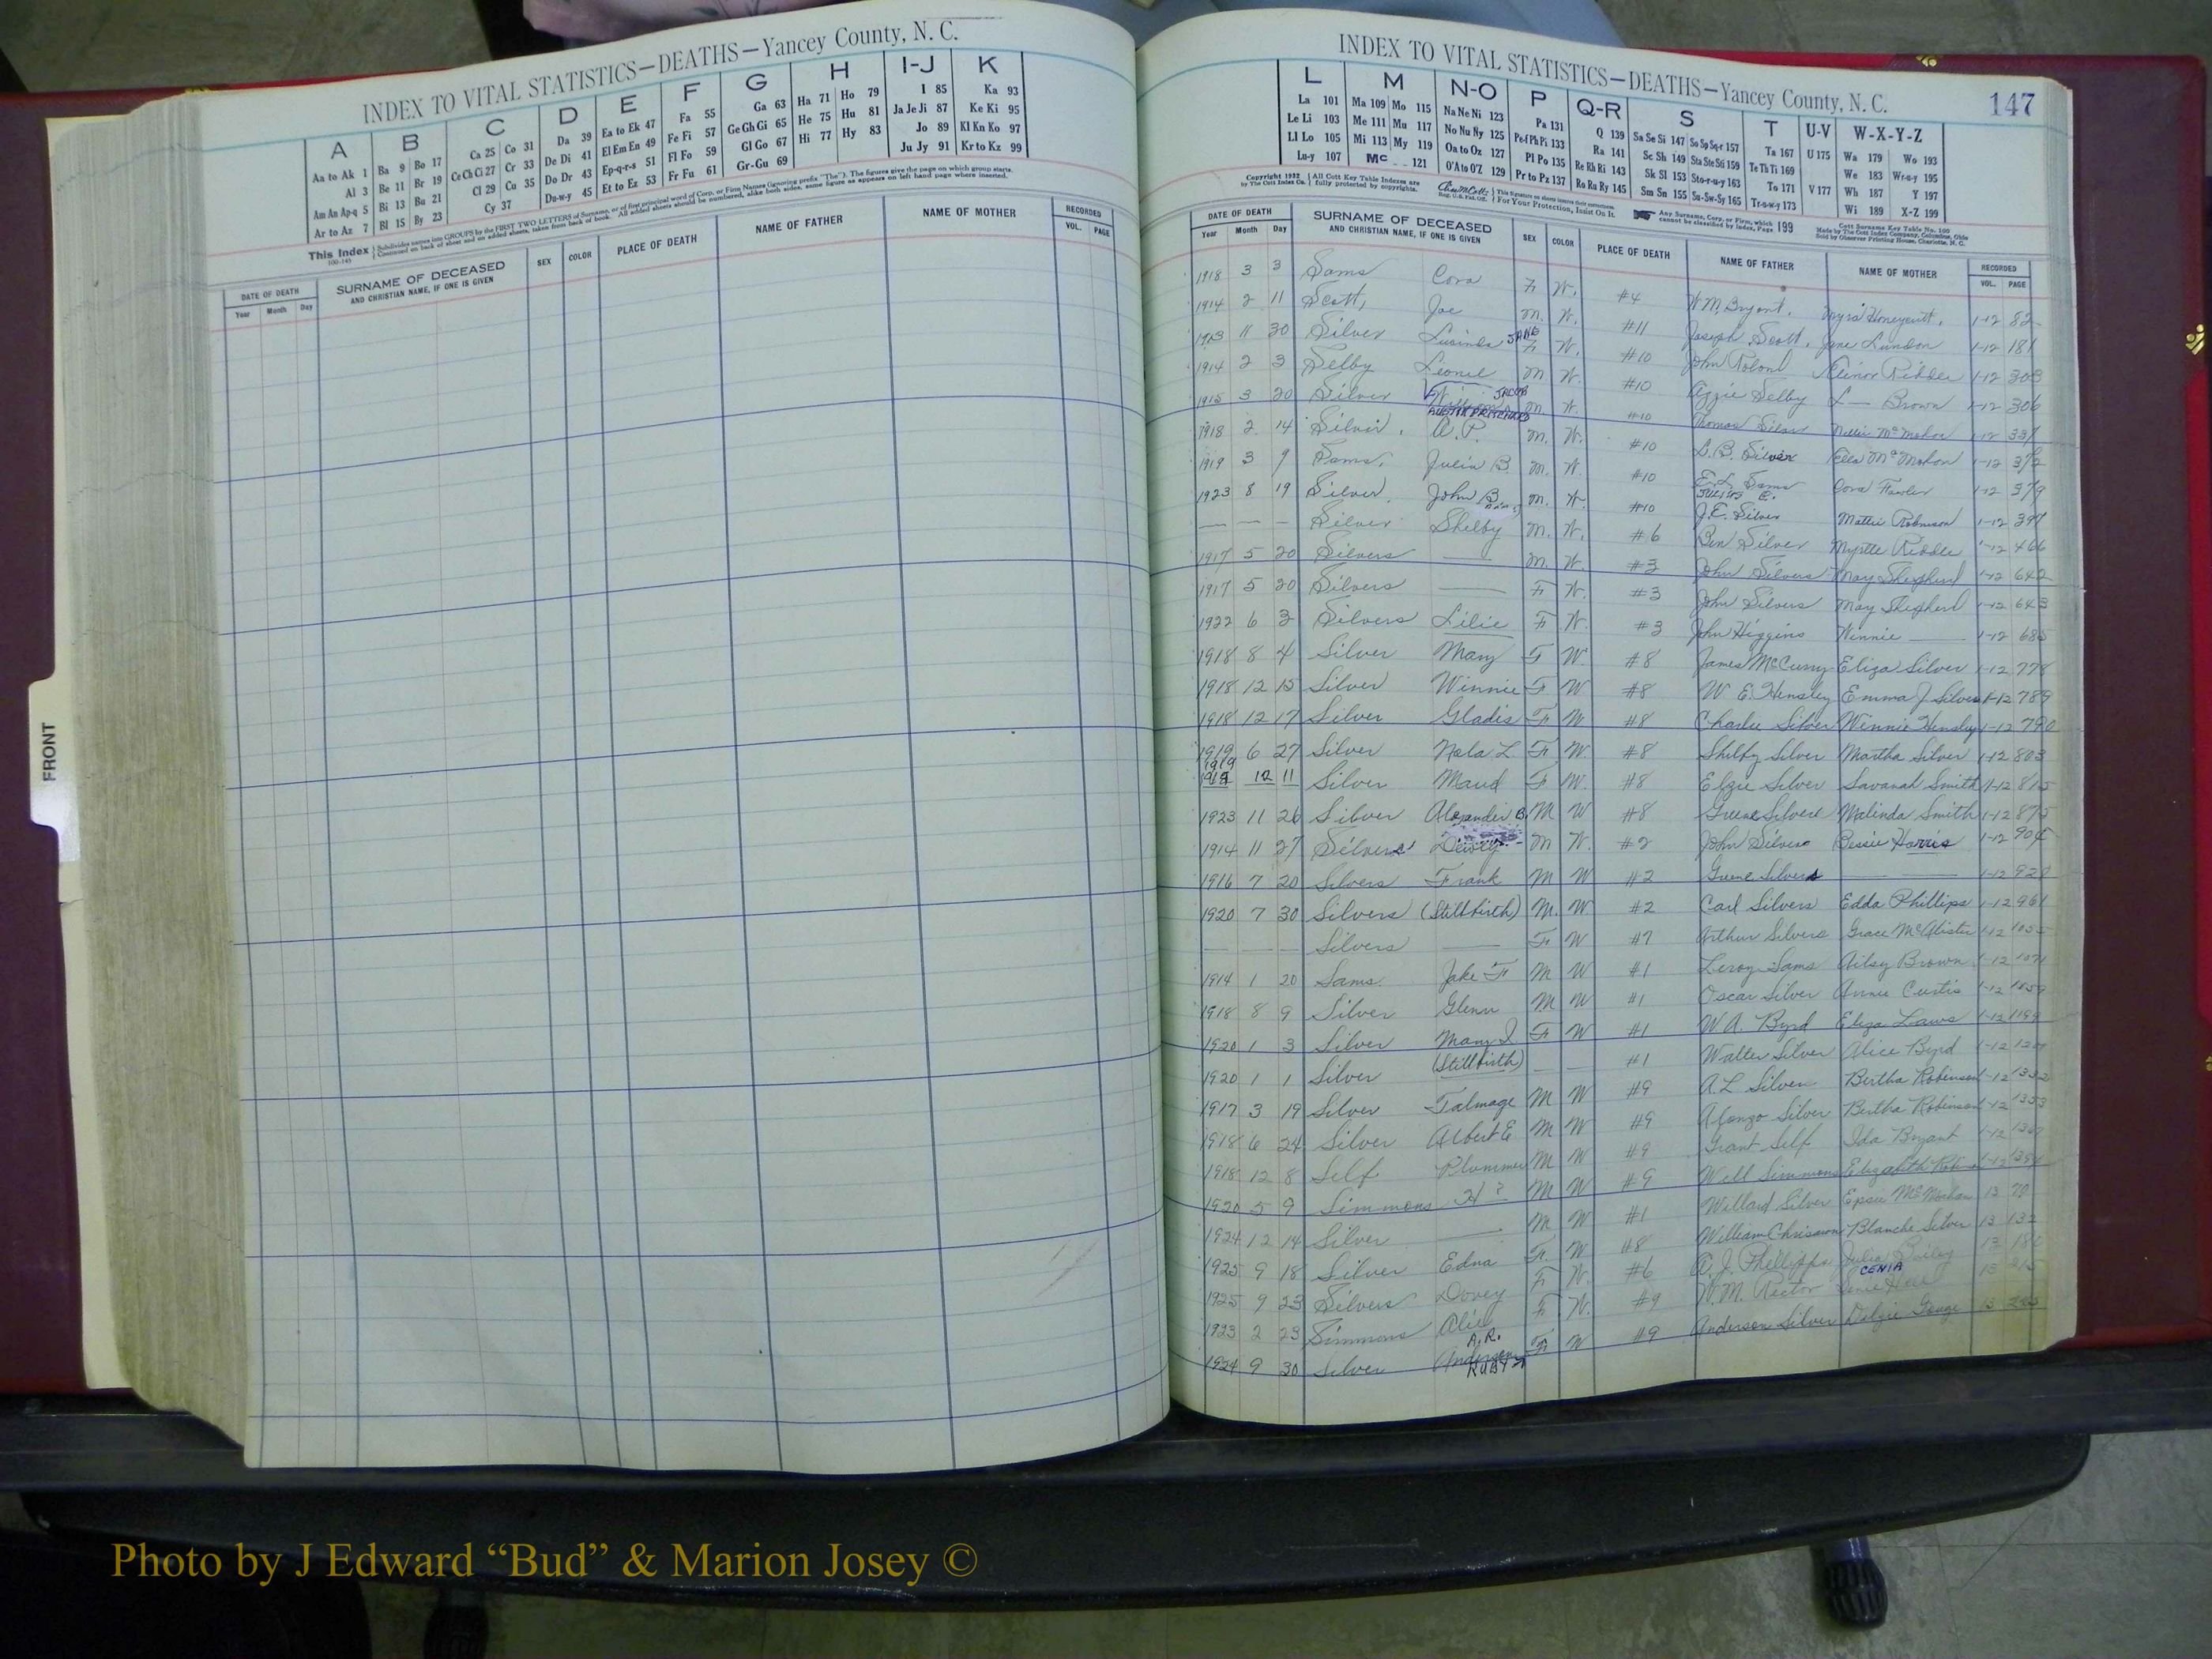 INDEX TO VITAL STATISTICS—DEATHS—Yancey County, N. C.
A B C D E F G H I-J K
Aa to Ak 1 Ba 9 Bo 17 Ca 25 Co 31 Da 39 Ea to Ek 47 Fa 55 Ga 63 Ha 71 Ho 79 I 85 Ka 93
Al 3 Be 11 Br 19 Ce Ch Ci 27 Cr 33 De Di 41 El Em En 49 Fe Fi 57 Ge Gh Gi 65 He 75 Hu 81 Ja Je Ji 87 Ke Ki 95
Am An Ap-q 5 Bi 13 Bu 21 Cl 29 Cu 35 Do Dr 43 Ep-q-r-s 51 Fl Fo 59 Gl Go 67 Hi 77 Hy 83 Jo 89 Kl Kn Ko 97
Ar to Az 7 Bl 15 By 23 Cy 37 Du-w-y 45 Et to Ez 53 Fr Fu 61 Gr-Gu 69 Ju Jy 91 Kr to Kz 99
This Index
DATE OF DEATH SURNAME OF DECEASED SEX COLOR PLACE OF DEATH NAME OF FATHER NAME OF MOTHER RECORDED
Year Month Day AND CHRISTIAN NAME, IF ONE IS GIVEN VOL. PAGE
FRONT
INDEX TO VITAL STATISTICS—DEATHS—Yancey County, N. C. 147
L M N-O P Q-R S T U-V W-X-Y-Z
La 101 Ma 109 Mo 115 Na Ne Ni 123 Pa 131 Q 139 Sa Se Si 147 So Sp Sq-r 157 Ta 167 U 175 Wa 179 Wo 193
Le Li 103 Me 111 Mu 117 No Nu Ny 125 Pe-f Ph Pi 133 Ra 141 Sc Sh 149 Sta Ste Sti 159 Te Th Ti 169 We 183 Wr-u-y 195
Ll Lo 105 Mi 113 My 119 Oa to Oz 127 Pl Po 135 Re Rh Ri 143 Sk Sl 153 Sto-r-u-y 163 To 171 V 177 Wh 187 Y 197
Lu-y 107 Mc 121 O'A to O'Z 129 Pr to Pz 137 Ro Ru Ry 145 Sm Sn 155 Su-Sw-Sy 165 Tr-u-w-y 173 Wi 189 X-Z 199
DATE OF DEATH SURNAME OF DECEASED SEX COLOR PLACE OF DEATH NAME OF FATHER NAME OF MOTHER RECORDED
Year Month Day AND CHRISTIAN NAME, IF ONE IS GIVEN VOL. PAGE
1918 3 3 Sams Cora F W. #4 W.M. Bryant. Honeycutt. 1-12 82
1914 2 11 Scott, Joe M. W. #11 Joseph Scott. Jane Lundon 1-12 181
1913 11 30 Silver Lusinda JANE F W. #10 John 1-12 303
1914 2 3 Selby Leonie M W. #10 Ozzie Selby L— Brown 1-12 306
1915 3 20 Silver JACOB M. W. #10 Thomas Silver McMahon 1-12 337
1918 2 14 Silver. A.P. AUSTIN PRITCHARD M. W. #10 L.B. Silver McMahon 1-12 372
1919 3 9 Sams, Julia B. M. W. #10 E.L. Sams Cora Fowler 1-12 379
1923 8 19 Silver. John B. M. W. #10 J.E. Silver JULIUS E. Mattie Robinson 1-12 397
— — — Silver Shelby M. W. #6 Ben Silver Myrtle Riddle 1-12 466
1917 5 20 Silvers — M. W. #3 John Silvers May Shepherd 1-12 642
1917 5 20 Silvers — F W. #3 John Silvers May Shepherd 1-12 643
1922 6 3 Silvers Lilie F W. #3 John Higgins Winnie — 1-12 685
1918 8 4 Silver Mary F W. #8 James McCurry Eliza Silver 1-12 778
1918 12 15 Silver Winnie F W #8 W E. Hensley Emma J Silver 1-12 789
1918 12 17 Silver Gladis F W #8 Charlie Silver Winnie Hensley 1-12 790
1919 6 27 Silver Nola L. F W. #8 Shilby Silver Martha Silver 1-12 803
1919 12 11 Silver Maud F W. #8 Elzie Silver Savanah Smith 1-12 815
1923 11 26 Silver Alexander B. M W #8 Greene Silver Malinda Smith 1-12 875
1914 11 27 Silvers Dewey M W. #2 John Silvers Bessie Harris 1-12 904
1916 7 20 Silvers Frank M W #2 Greene Silvers — 1-12 928
1920 7 30 Silvers (Stillbirth) M. W #2 Carl Silvers Edda Phillips 1-12 961
— — — Silvers — F W #7 Arthur Silvers Grace McAlister 1-12 1055
1914 1 20 Sams. Jake F M W #1 Leroy Sams Ailsy Brown 1-12 1071
1918 8 9 Silver Glenn M W #1 Oscar Silver Annie Curtis 1-12
1920 1 3 Silver Mary J. F W #1 W.A. Byrd Eliza Laws 1-12
1920 1 1 Silver (Stillbirth) — — #1 Walter Silver Alice Byrd 1-12
1917 3 19 Silver Talmage M W #9 A.L Silver Bertha Robinson 1-12 1332
1918 6 24 Silver Albert E M W #9 Alonzo Silver Bertha Robinson 1-12 1353
1918 12 8 Self Plummer M W #9 Grant Self Ida Bryant 1-12
1920 5 9 Simmons M W #9 Will Simmons Elizabeth 1-12
1924 12 14 Silver — M W #1 Willard Silver Epsie McMahan 13 70
1925 9 18 Silver Edna F. W #8 William Chrisawn Blanche Silver 13 132
1925 9 23 Silvers Dovey F W. #6 J. Phillips Julia Bailey 13
1923 2 23 Simmons F. W. #9 W.M. Rector CENIA 13
1924 9 30 Silver A.R. RUBY F W #9 Anderson Silver Gouge 13
Photo by J Edward “Bud” & Marion Josey ©